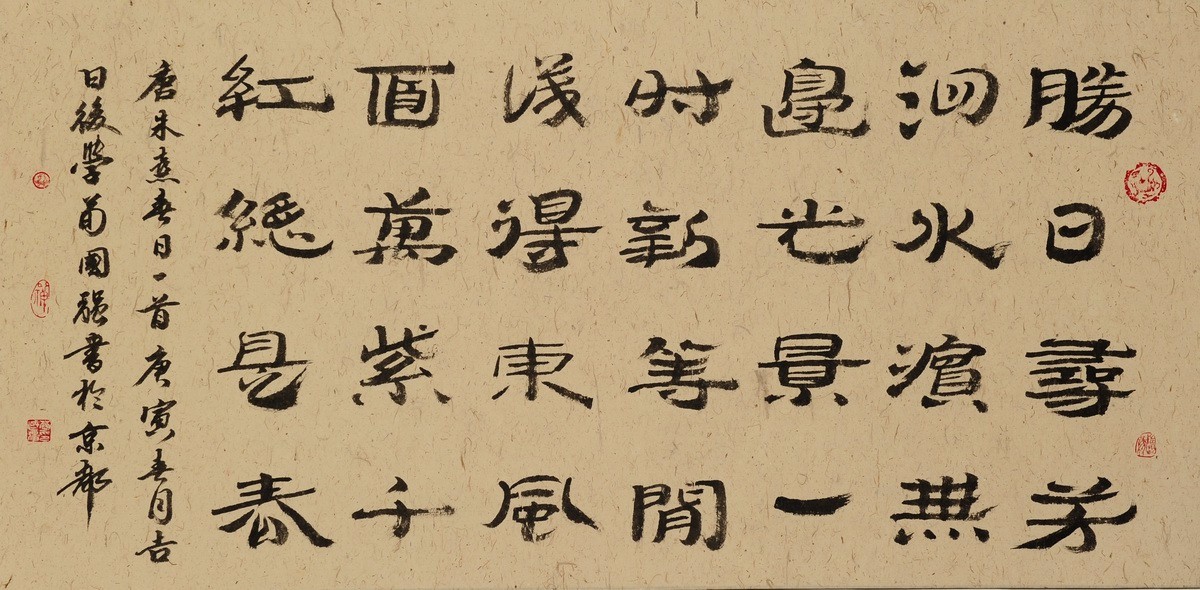 勝日尋芳
泗水濱無
邊光景一
时新等閒
識得東風
面萬紫千
紅總是春
唐朱熹春日一首庚寅春月吉
日後學國強書於京都